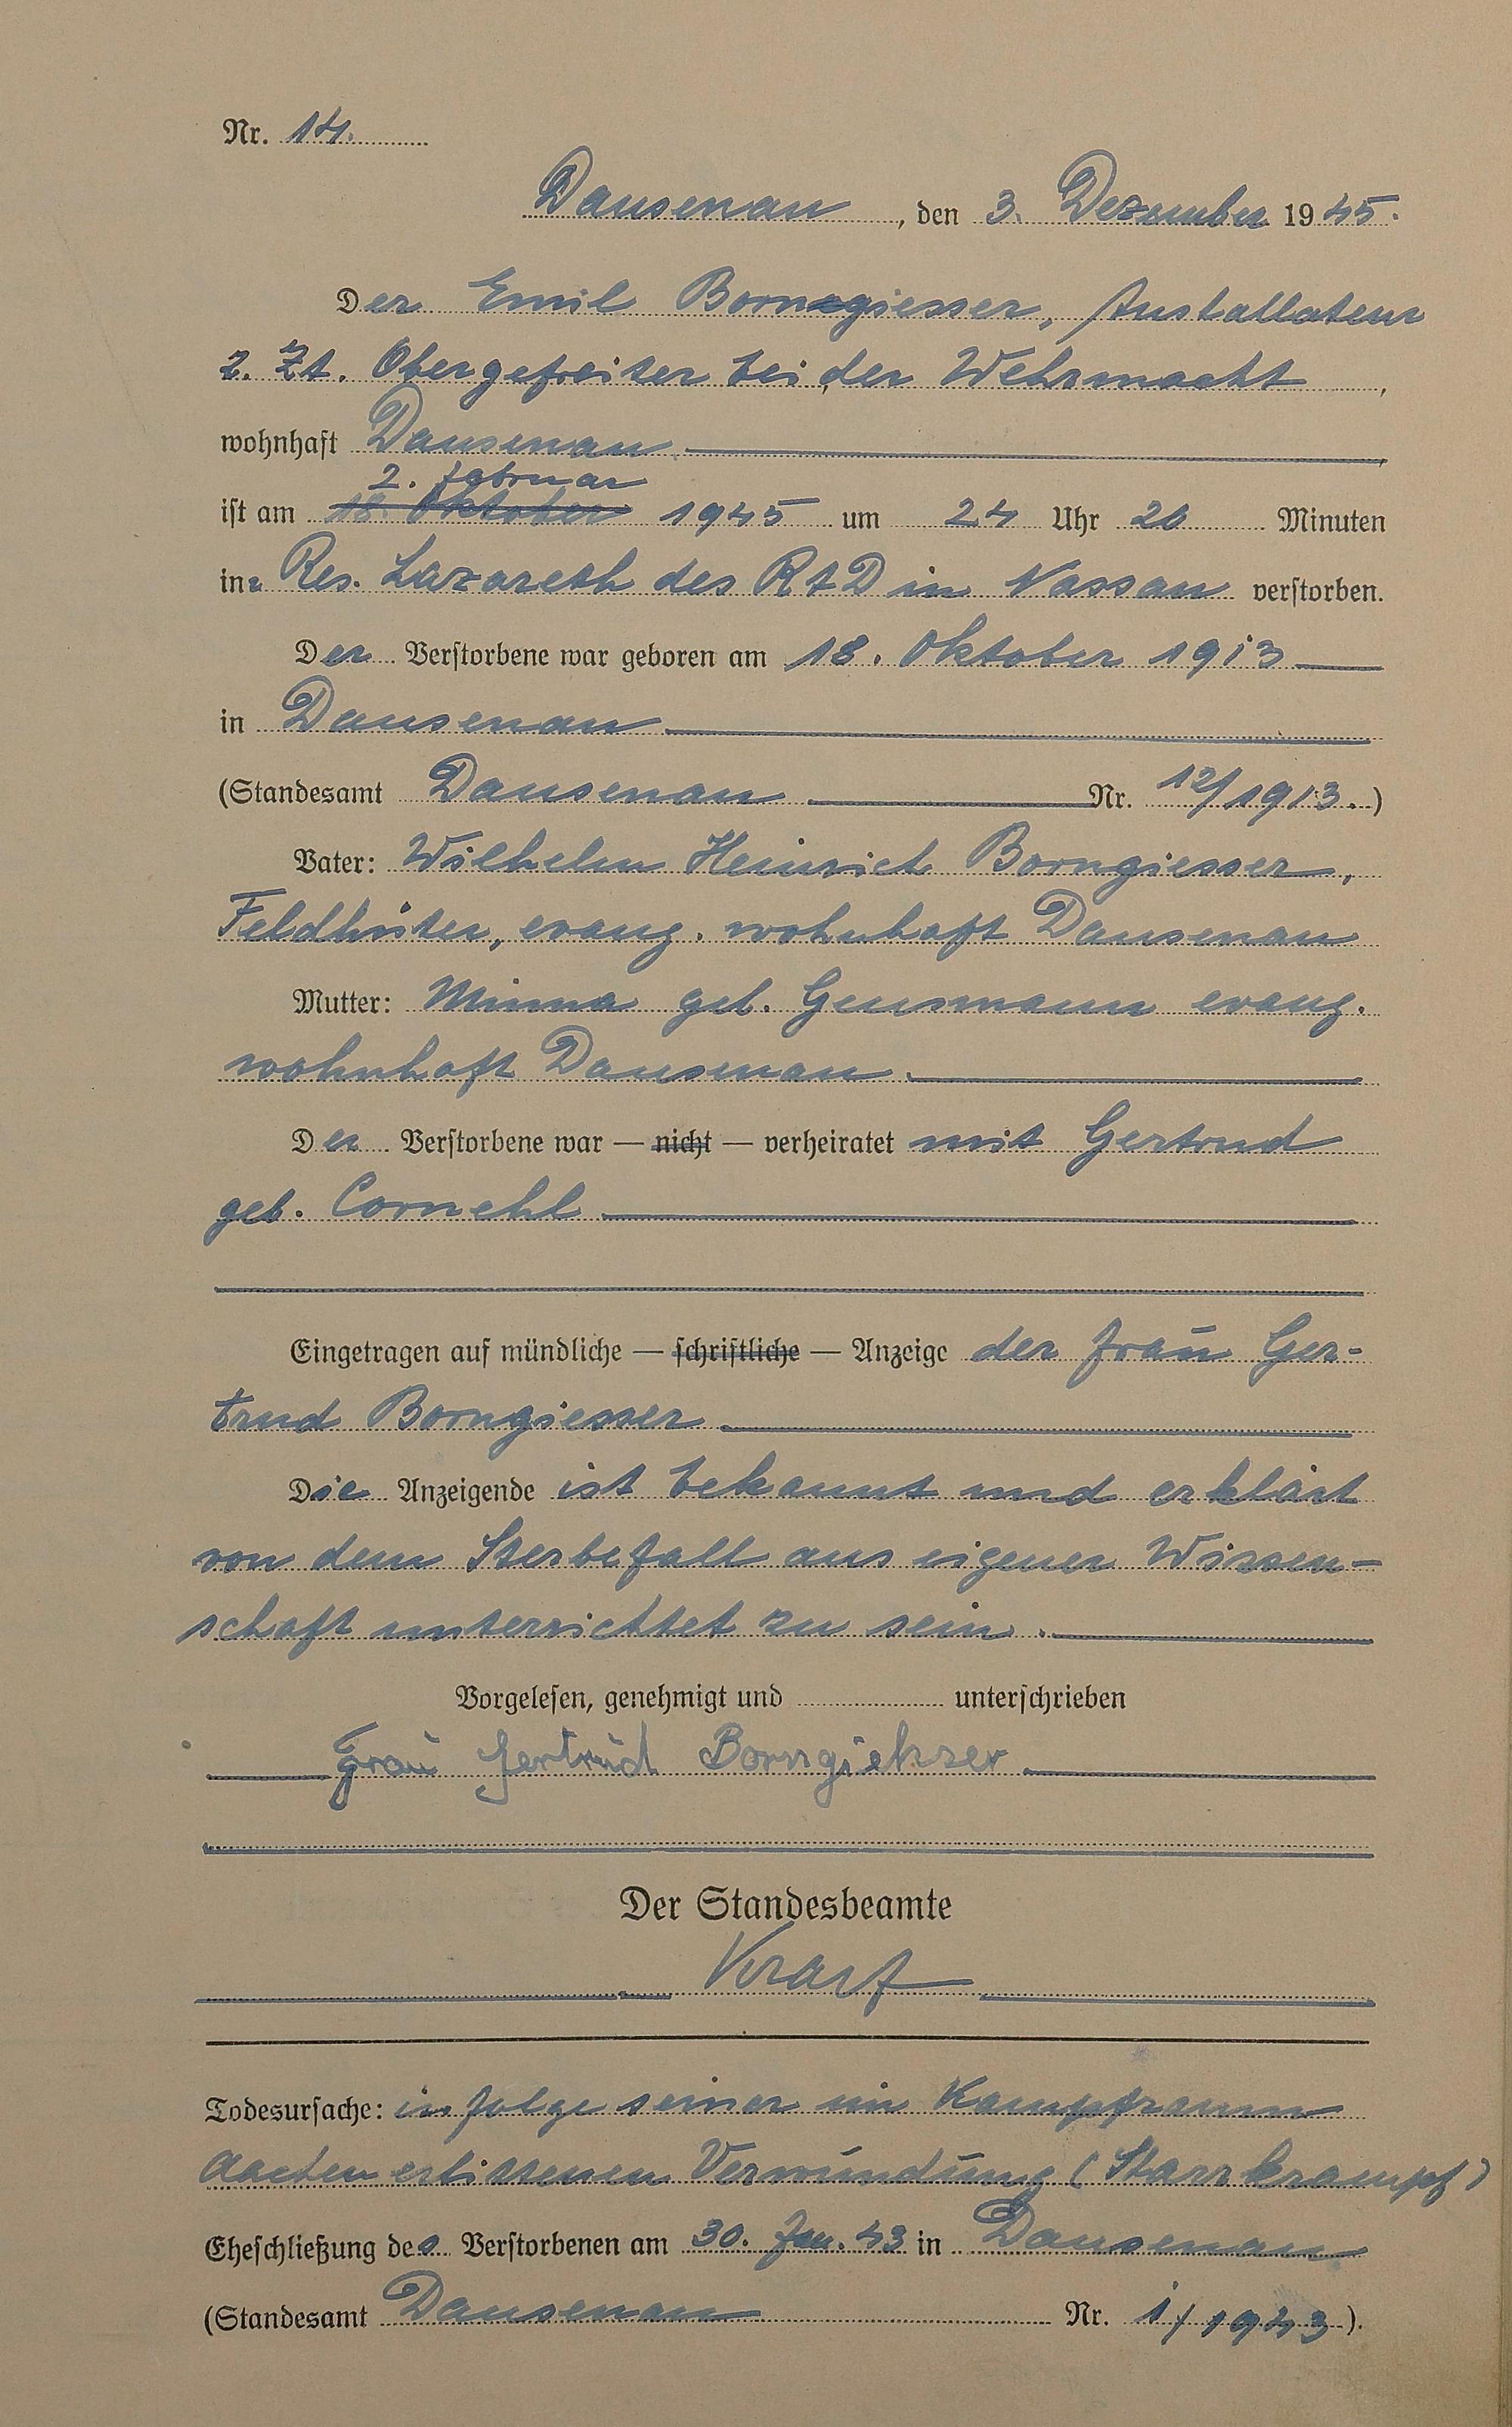 Nr. 14.
Dausenau, den 3. Dezember 1945.
Der Emil Borngiesser, Installateur
z. Zt. Obergefreiter bei der Wehrmacht,
wohnhaft Dausenau.
2. Februar
ist am 18. Oktober 1945 um 24 Uhr 20 Minuten
in Res. Lazareth des RAD in Nassau verstorben.
Der Verstorbene war geboren am 18. Oktober 1913
in Dausenau
(Standesamt Dausenau Nr. 12/1913.)
Vater: Wilhelm Heinrich Borngiesser,
Feldhüter, evang. wohnhaft Dausenau
Mutter: Minna geb. Gensmann evang.
wohnhaft Dausenau.
Der Verstorbene war — nicht — verheiratet mit Gertrud
geb. Cornehl
Eingetragen auf mündliche — schriftliche — Anzeige der Frau Ger-
trud Borngiesser
Die Anzeigende ist bekannt und erklärt
von dem Sterbefall aus eigener Wissen-
schaft unterrichtet zu sein.
Vorgelesen, genehmigt und unterschrieben
Frau Gertrud Borngießer.
Der Standesbeamte
Todesursache: infolge seiner im Kampfraum
Aachen erlittenen Verwundung (Starrkrampf)
Eheschließung des Verstorbenen am 30. Jan. 43 in Dausenau
(Standesamt Dausenau Nr. 1/1943).